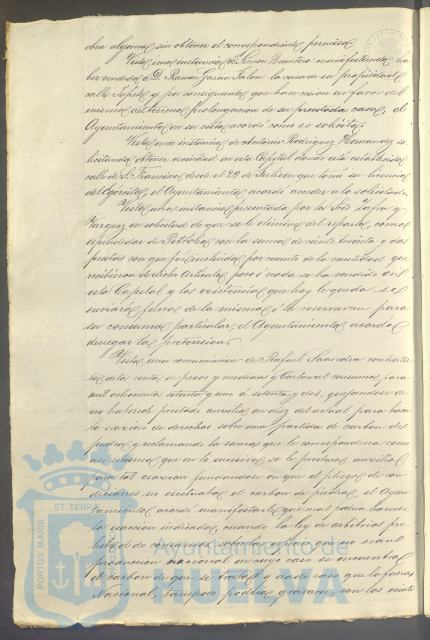 obra alguna sin obtener el correspondiente permiso.
Vista una instancia de Simon Quintero manifestando ha
ber vendido a D. Ramon Garcia la casa de su propiedad
calle y por consiguiente que hace cesion en favor del
mismo del terreno prolongacion de su casa, el
Ayuntamiento en su vista acordó como se solicita.
Vista una instancia de Antonio Rodriguez Hernandez so
licitando obtener vecindad en esta Capital donde está establecido
calle de S. Francisco desde el 29 de Julio en que tomó su licencia
del Ejército, el Ayuntamiento acordó acceder a lo solicitado.
Vista una instancia presentada por los Sres. y
Vazquez en solicitud de que se le elimine del reparto, como
espendedor de Petroleo, con la suma de veinte y dos
pesetas con que fué incluido por cuanto de la cantidad que
recibieron de dicho Articulo, poco ó nada se ha vendido en
esta Capital y las existencias que hoy le queda se
enviará fuera de la misma ó la reservan para
su consumo particular, el Ayuntamiento acordó
denegar la pretension.
Vista una comunicacion de Rafael Saavedra contratis
ta de la renta de pesos y medidas y Carbon al consumo para
mil ochocientos setenta y uno á setenta y dos, quejandose de
no haberle prestado auxilio en diez del actual para hacer
la exaccion de derechos sobre una partida de carbon de
piedra, y reclamando la suma que le correspondiera como
asi mismo que en lo sucesivo se le prestara auxilio
para tal exaccion fundandose en que el pliego de con
diciones no esceptuaba el carbon de piedra, el Ayun
tamiento acordó manifestarle que mal podria hacerse
la exaccion indicada, cuando la ley de arbitrios pro
hibe el de consumos sobre las especies que no sean
produccion nacional en cuyo caso se encuentra
el carbon de que se trata y dado caso que lo fuera
Nacional, tampoco podria gravarse con los veinte
PORTUS MARIS ET TERRAE
Ayuntamiento de
HUELVA